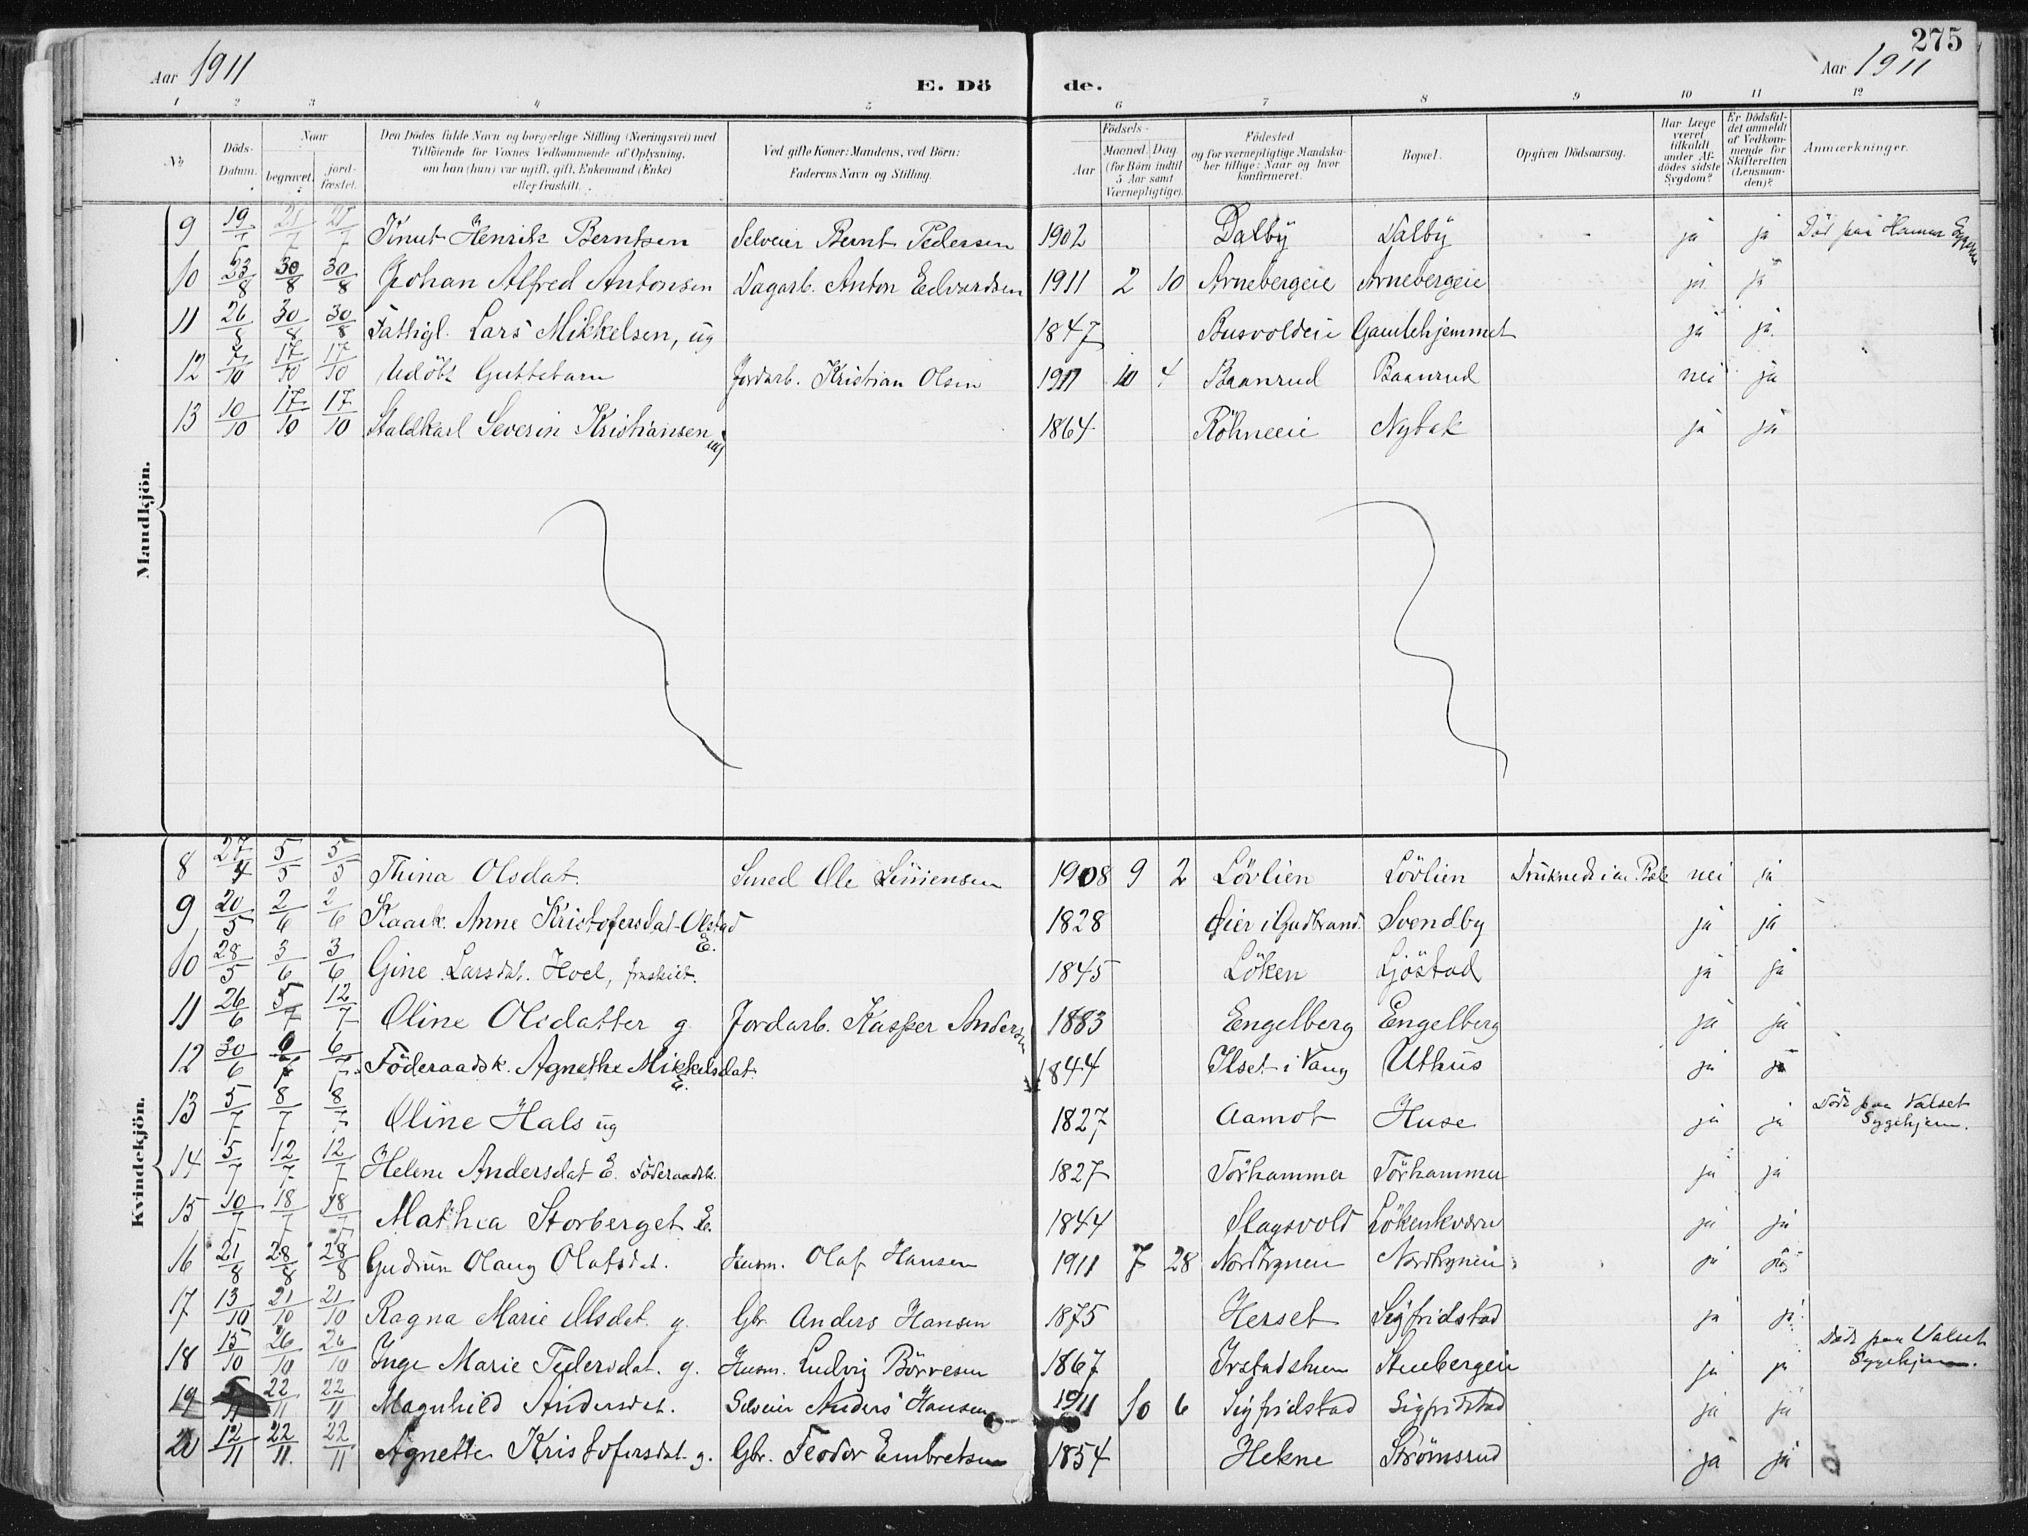 275
Aar 1911 E. Dö de. Aar 1911
1 2 3 4 5 6 7 8 9 10 11 12
No
Döds-Datum.
Naar
begravet.
jordfæstet.
Den Dödes fulde Navn og borgerlige Stilling (Næringsvei) med
Tilföiende for Voxnes Vedkommende af Oplysning,
om han (hun) var ugift, gift, Enkemand (Enke)
eller fraskilt.
Ved gifte Koner: Mandens, ved Börn:
Faderens Navn og Stilling.
Födsels-
Aar
Maaned Dag
(for Börn indtil
5 Aar samt
Værnepligtige).
Födested
og for værnepligtige Mandska-
ber tillige: Naar og hvor
konfirmeret.
Bopæl.
Opgiven Dödsaarsag.
Har Læge
været
tilkaldt
under Af-
dödes sidste
Sygdom?
Er Dödsfal-
det anmeldt
af Vedkom-
mende for
Skifteretten
(Lensman-
den)?
Anmærkninger.
Mandkjön.
9 19/7 21/7 21/7 Knut Henrik Berntsen Selveier Bernt Pedersen 1902 Dalby Dalby ja ja Död paa Hamar
10 23/8 30/8 30/8 Johan Alfred Antonsen Dagarb. Anton Edvardsen 1911 2 10 Arnebergeie Arnebergeie ja ja
11 26/8 30/8 30/8 Fattigl. Lars Mikkelsen, ug 1847 Busvoldeie Gamlehjemmet ja ja
12 4/10 17/10 17/10 Udöbt Guttebarn Jordarb. Kristian Olsen 1911 10 4 Baanrud Baanrud nei ja
13 10/10 17/10 17/10 Staldkarl Severin Kristiansen ug 1864 Röhneeie Nybak ja ja
Kvindekjön.
8 27/4 5/5 5/5 Thina Olsdat. Smed Ole 1908 9 2 Lövlien Lövlien nei ja
9 20/5 2/6 2/6 Kaark. Anne Kristofersdat-Olstad E. 1828 Öier i Gudbrand. Svendby ja ja
10 28/5 3/6 3/6 Gine Larsdat. Hoel, fraskilt. 1845 Löken Ljöstad ja ja
11 26/6 5/7 12/7 Oline Olsdatter g Jordarb. Kasper Andersen 1883 Engelberg Engelberg ja ja
12 30/6 6/7 6/7 Föderaadsk. Agnethe Mikkelsdat. E. 1844 Ilset i Vang Uthus ja ja
13 5/7 8/7 8/7 Oline Hals ug 1827 Aamot Huse ja ja Död paa Valset Sygehjem.
14 5/7 12/7 12/7 Helene Andersdat E. Föderaadsk. 1827 Torhammer Torhammer ja ja
15 10/7 18/7 18/7 Mathea Storberget E. 1844 Slagsvold Lökenkværn ja ja
16 21/8 28/8 28/8 Gudrun Olaug Olafsdat. Husm. Olaf Hansen 1911 7 28 ja ja
17 13/10 21/10 21/10 Ragna Marie Olsdat. g. Gbr. Anders Hansen 1875 Herset Sigfridstad ja ja
18 15/10 26/10 26/10 Inge Marie Pedersdat. g. Husm. Ludvig Börresen 1867 Stenbergeie ja ja Död paa Valset Sygehjem.
19 22/11 22/11 Magnhild Andersdat. Selveier Anders Hansen 1911 10 6 Sigfridstad Sigfridstad ja ja
20 12/11 22/11 22/11 Agnette Kristofersdat. g. Gbr. Teodor Embretsen 1854 Hekne Strömsrud ja ja